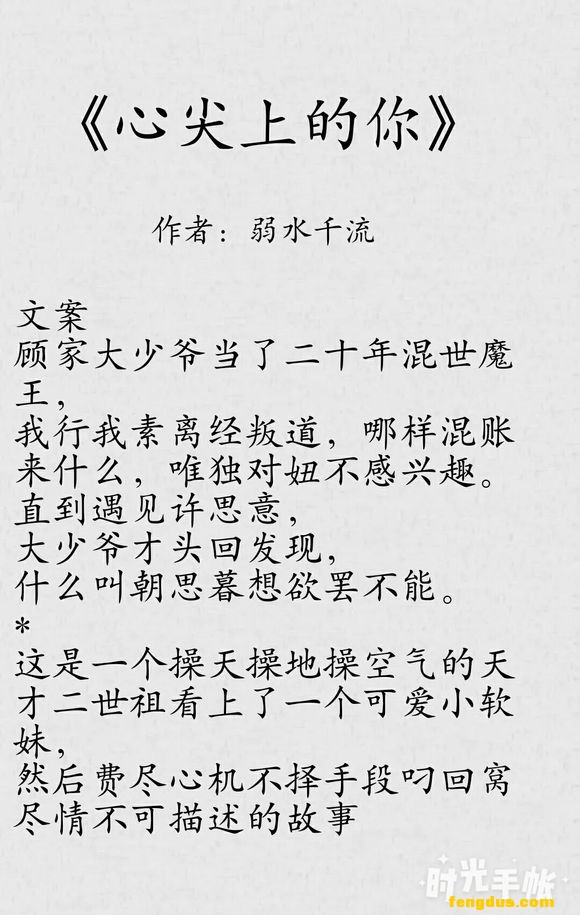 《心尖上的你》
作者：弱水千流
文案
顾家大少爷当了二十年混世魔
王，
我行我素离经叛道，哪样混账
来什么，唯独对妞不感兴趣。
直到遇见许思意，
大少爷才头回发现，
什么叫朝思暮想欲罢不能。
*
这是一个操天操地操空气的天
才二世祖看上了一个可爱小软
妹，
然后费尽心机不择手段叼回窝
尽情不可描述的故事
时光手帐
fengdus.com